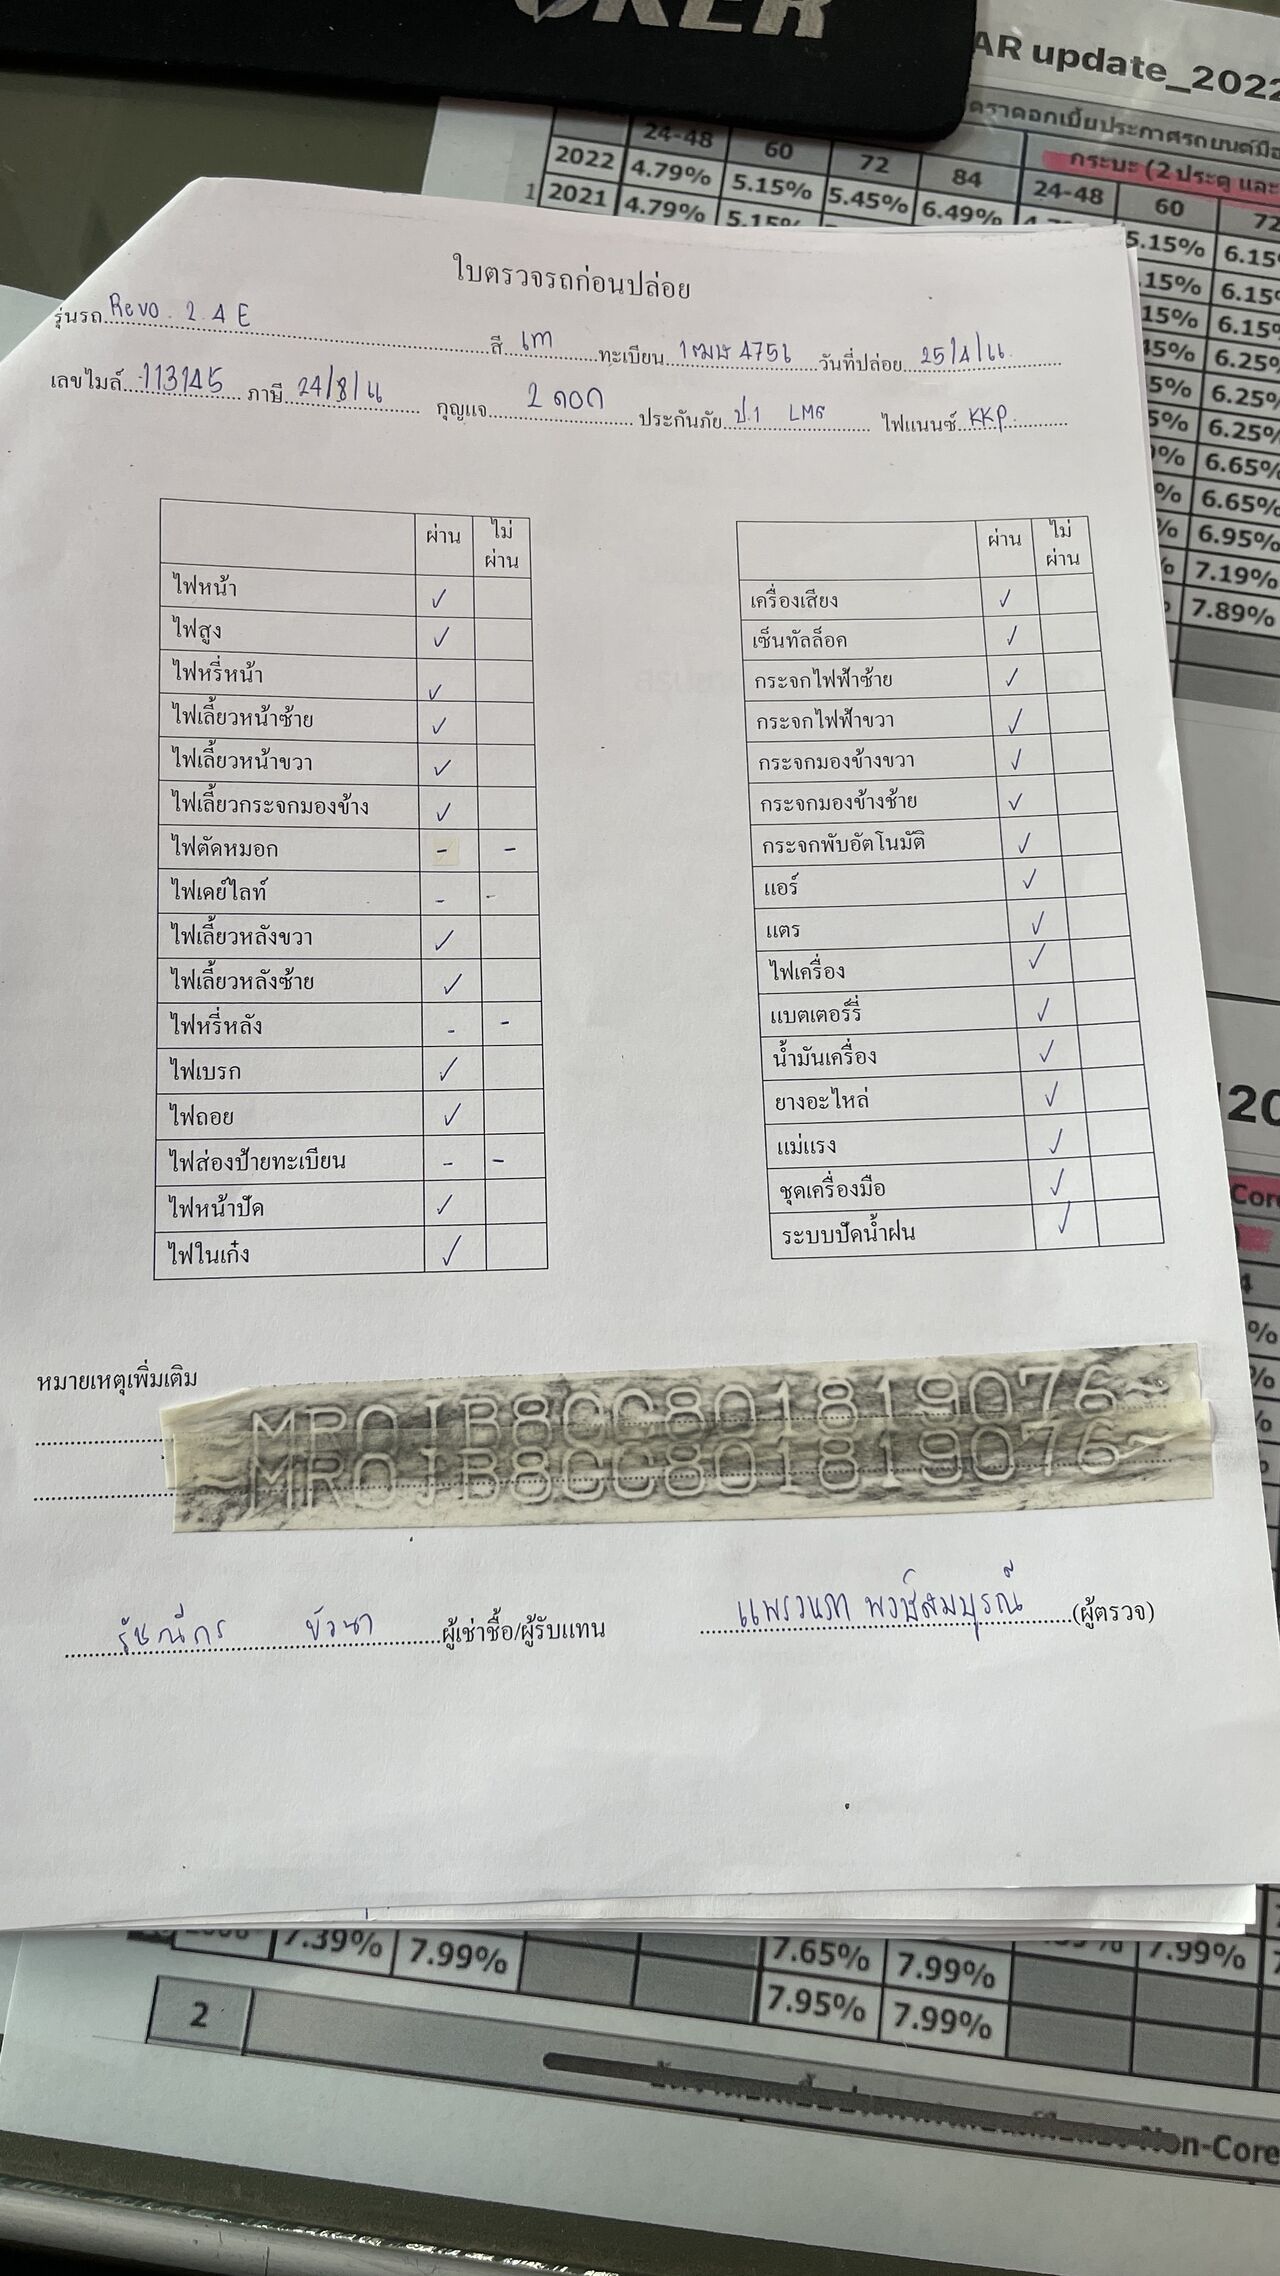 OKER
AR update_2022
24-48 60 72 84
กระบะ (2 ประตู และ
2022 4.79% 5.15% 5.45% 6.49% 24-48 60 72
1 2021 4.79% 5.15%
5.15% 6.15%
ใบตรวจรถก่อนปล่อย
รุ่นรถ Revo 2.4 E สี เทา ทะเบียน 1ฒฆ 4756 วันที่ปล่อย 25/4/66
เลขไมล์ 113145 ภาษี 24/8/66 กุญแจ 2 ดอก ประกันภัย ป.1 LMG ไฟแนนซ์ KKP
ผ่าน ไม่ผ่าน
ไฟหน้า ✓
ไฟสูง ✓
ไฟหรี่หน้า ✓
ไฟเลี้ยวหน้าซ้าย ✓
ไฟเลี้ยวหน้าขวา ✓
ไฟเลี้ยวกระจกมองข้าง ✓
ไฟตัดหมอก - -
ไฟเดย์ไลท์ - -
ไฟเลี้ยวหลังขวา ✓
ไฟเลี้ยวหลังซ้าย ✓
ไฟหรี่หลัง - -
ไฟเบรก ✓
ไฟถอย ✓
ไฟส่องป้ายทะเบียน - -
ไฟหน้าปัด ✓
ไฟในเก๋ง ✓
ผ่าน ไม่ผ่าน
เครื่องเสียง ✓
เซ็นทัลล็อค ✓
กระจกไฟฟ้าซ้าย ✓
กระจกไฟฟ้าขวา ✓
กระจกมองข้างขวา ✓
กระจกมองข้างซ้าย ✓
กระจกพับอัตโนมัติ ✓
แอร์ ✓
แตร ✓
ไฟเครื่อง ✓
แบตเตอร์รี่ ✓
น้ำมันเครื่อง ✓
ยางอะไหล่ ✓
แม่แรง ✓
ชุดเครื่องมือ ✓
ระบบปัดน้ำฝน ✓
หมายเหตุเพิ่มเติม
~MR0JB8CC801819076~
~MR0JB8CC801819076~
รัชณีกร บัวนา ผู้เช่าซื้อ/ผู้รับแทน แพรวนภา พงษ์สมบูรณ์ (ผู้ตรวจ)
6.15%
6.15%
6.25%
6.25%
6.25%
6.65%
6.65%
6.95%
7.19%
7.89%
7.39% 7.99% 7.65% 7.99% 7.99%
7.95% 7.99%
2
Non-Core